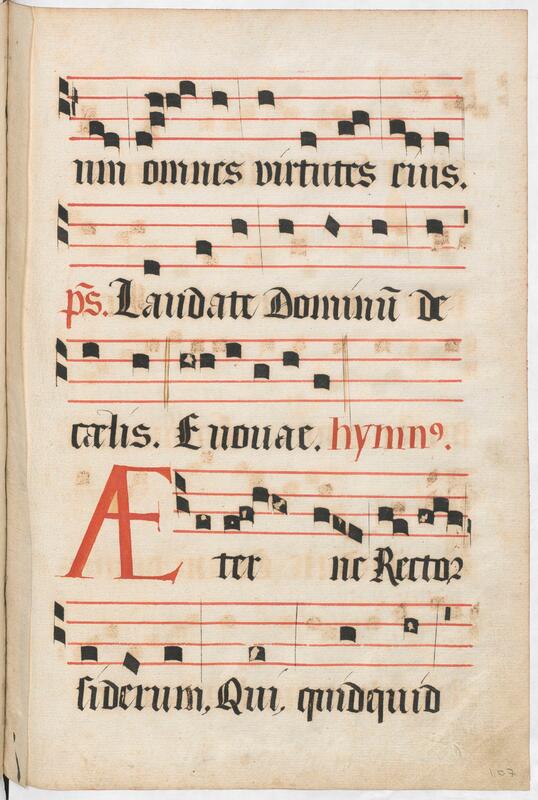 um omnes virtutes eius.
ps̄. Laudate Dominū de
cælis. Euouae. hymnꝰ.
Æter ne Rector
siderum, Qui, quidquid
107